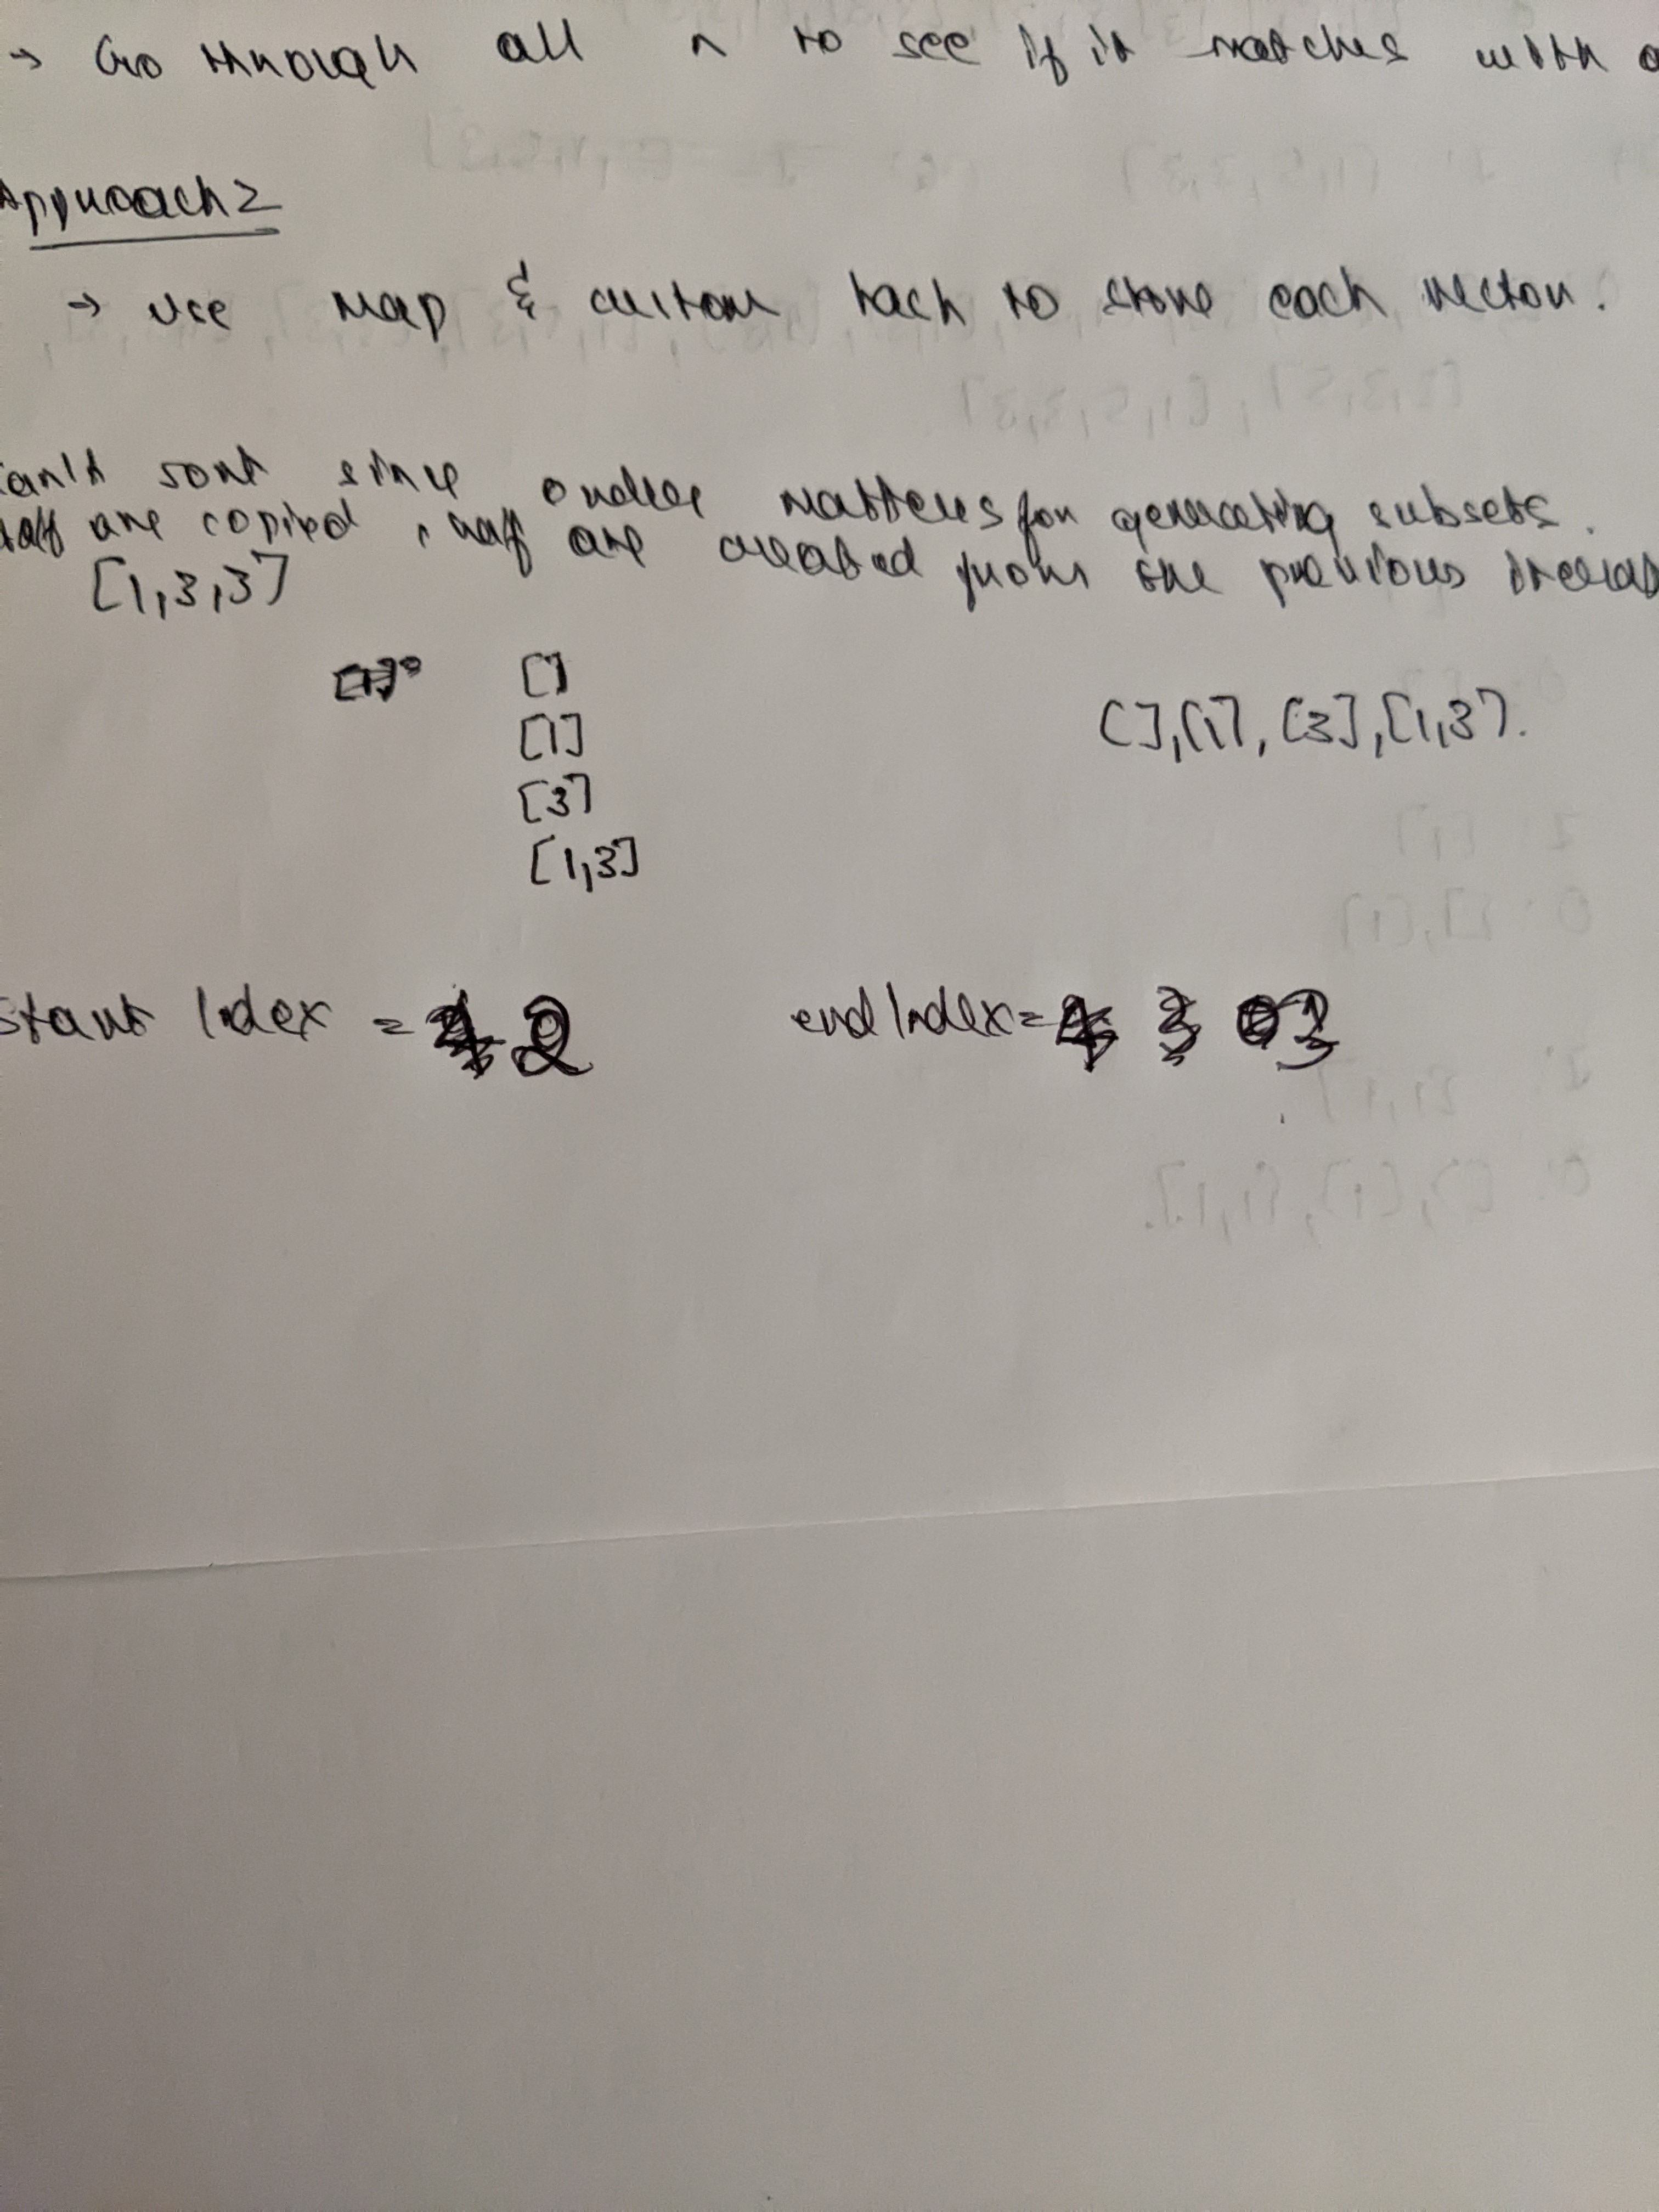 → Go through all n to see if it matches with a
Approach 2
→ Use map & custom hash to store each vector.
can't sort since order matters for generating subsets.
half are copied, half are created from the previous iterat
[1,3,3]
[] [],[1],[3],[1,3].
[1]
[3]
[1,3]
start Index = 2 endIndex = 3